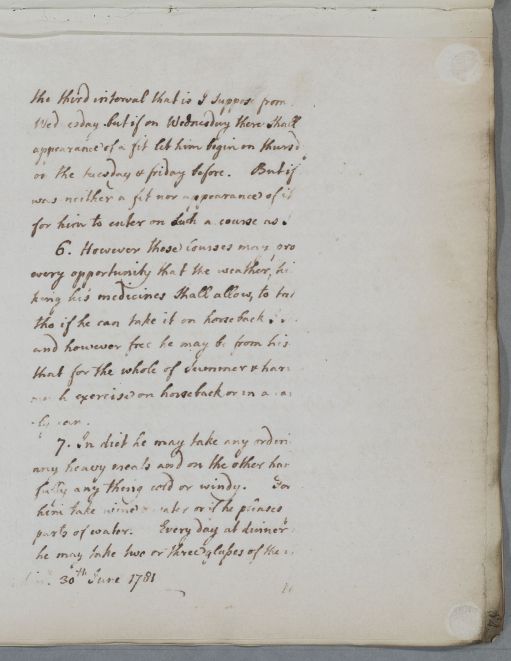 the third interval that is I suppose from
Wed esday. but if on Wednesday there shall
appearance of a fit let him begin on thursd
or the tuesday & friday before. But if
was neither a fit nor appearance of it
for him to enter on such a course as
6. However these courses may pro
every opportunity that the weather, hi
king his medicines shall allow, to tra
tho if he can take it on horseback.
and however free he may be from his
that for the whole of Summer & har
exercise on horseback or in a
7. In diet he may take any ordin
any heavy meals and on the other han
fully any thing cold or windy. For
him take wine & water or if he pleases
parts of water. Every day at dinner
he may take two or three glasses of the
30th June 1781